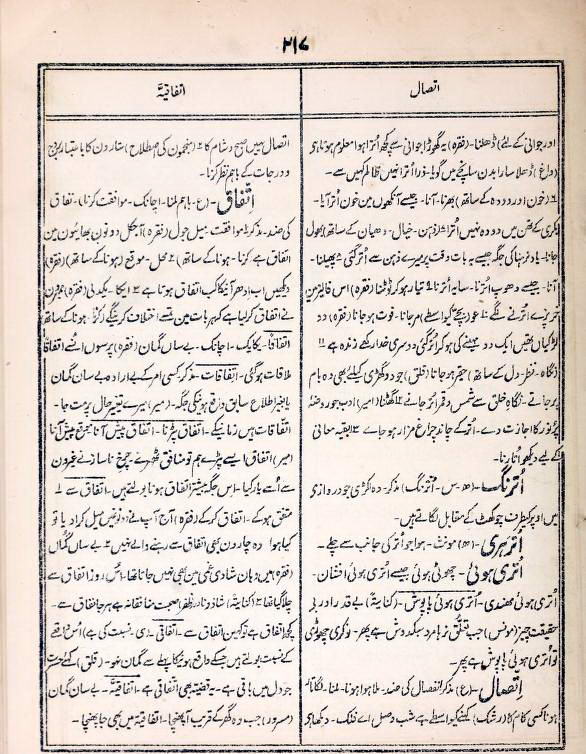 ۲۱۷
اتصال
اور جوانی کے لئے) ڈھلنا۔ (فقرہ) یہ گھوڑا جوانی سے کچھ اُترا ہوا معلوم ہوتا ہی
(داغ) ڈھلا سارا بدن سانچے میں گویا۔ ذرا اُترا نہیں ظالم کہیں سے۔
(خون اور دودھ کے ساتھ) بھرنا۔ آنا۔ جیسے آنکھوں میں خون اُتر آیا۔
بکری کے تھن میں دودھ نہیں اُترا ذہن۔ خیال۔ دھیان کے ساتھ) بھول
جانا۔ یاد نرہنا کی جگہ جیسے یہ بات وقت پر میرے ذہن سے اُتر گئی پھیلنا۔
آنا۔ جیسے دھوپ اُترنا۔ سایہ اُترنا تیار ہو کر ٹوٹنا (فقرہ) اس فالیز میں
خرپزے اُترنے لگے بچے کیواسطے) مرجانا۔ فوت ہوجانا (فقرہ) دو
لڑکیاں تھیں ایک دو مہینے کی ہو کر اُتر گئی دوسری خدا رکھے زندہ ہے
(نگاہ۔ نظر۔ دل کے ساتھ) حقیر ہوجانا (قلق) جو دو گھڑی کیلئے بھی وہ بام
پر جاتے۔ نگاہ خلق سے شمس و قمر اُتر جاتے (امیر) ادب جو روضۂ
پُر نور کا اجازت دے۔ اُتر کے چاند چراغ مزار ہو جاے بقیہ معانی
کے لیے دیکھو اُتارنا۔
اُترنگ۔ مذکر۔ وہ لکڑی جو دروازی
میں اوپر کیطرف چوکھٹ کے مقابل لگاتے ہیں۔
اُترہری۔ (ھ) مونث۔ ہوا جو اُتر کی جانب سے چلے۔
اُتری ہوئی۔ چھوٹی ہوئی جیسے اُتری ہوئی افشان۔
اُتری ہوئی مہندی۔ اُتری ہوئی پاپوش۔ (کنایۃً) بے قدر اور بے
حقیقت چیز (مونس) جب تعلّق نرہا مرد سبکدوش ہے پھر۔ نوکری چھوڑی
تو اُتری ہوئی پاپوش ہے پھر۔
اتصال۔ (ع) مذکر انفصال کی ضد۔ ملا ہوا ہونا۔ ملنا۔ لگاتار
ہونا کسی کام کا کہنے کیواسطے ہے شب وصل اے فلک۔
اتفاقیۂ
اتصال ہمیں صبح و شام کا (منجموں کی اصطلاح) ستاروں کا باعتبار بروج
و درجات کے باہم نظر کرنا۔
اتفاق۔ (ع۔ باہم ملنا۔ اچانک۔ موافقت کرنا)۔ نفاق
کی ضد۔ مذکر موافقت۔ میل جول (فقرہ) آجکل دونوں بھائیوں میں
اتفاق ہے کرنا۔ ہونا کے ساتھ) محل۔ موقع (ہونا کے ساتھ) (فقرہ)
دیکھیں اب اِدھر آنیکا کب اتفاق ہوتا ہے ایکا۔ یکدلی (فقرہ)
نے اتفاق کرلیا ہے کہ ہر بات میں اختلاف کرینگے ہونا کے ساتھ
اتفاقاً۔ یکایک۔ اچانک۔ بے سان گمان (فقرہ) پرسوں اُنسے اتفاقاً
ملاقات ہوگئی۔ اتفاقات۔ مذکر۔ کسی امر کے بے ارادہ بے سان گمان
یا بغیر اطلاع سابق واقع ہونیکی جگہ۔ (میر) میرے تغییر حال پر مت جا۔
اتفاقات ہیں زمانیکے۔ اتفاق پڑنا۔ اتفاق پیش آنا موقع پیش آنا
(امیر) اتفاق ایسے پڑے ہم تو منافق ٹھہرے۔ چرخ ناساز نے غیروں
سے اُسے یار کیا۔ اس جگہ بیشتر اتفاق ہونا بولتے ہیں۔ اتفاق سے
متفق ہوکے۔ اتفاق کرکے (فقرہ) آج آپ نے دونوں میں میل کرا دیا تو
کیا ہوا وہ چاروں بھی اتفاق سے رہنے والے نہیں بے سان گماں
(فقرہ) میں وہاں شادی غمی میں بھی نہیں جاتا تھا۔ اُس روز اتفاق سے
چلا گیا تھا (کنایۃً) شاذ و نادر (ظفر) صحبت منافقانہ ہے ہر جا نفاق سے۔
کچھ اتفاق ہے تو کہیں اتفاق سے۔ اتفاقی۔ (ی۔ نسبت کی ہے) اُس واقعے
کے نسبت بولتے ہیں جسکے واقع ہونیکا پہلے سے گمان نہو۔ (قلق)
جو دل میں باقی ہے۔ یہ قضیہ بھی اتفاقی ہے۔ اتفاقیۂ۔ بے سان گمان
(سرور) جب وہ گھر کے قریب آپہنچا۔ اتفاقیہ میں بھی جا پہنچا۔